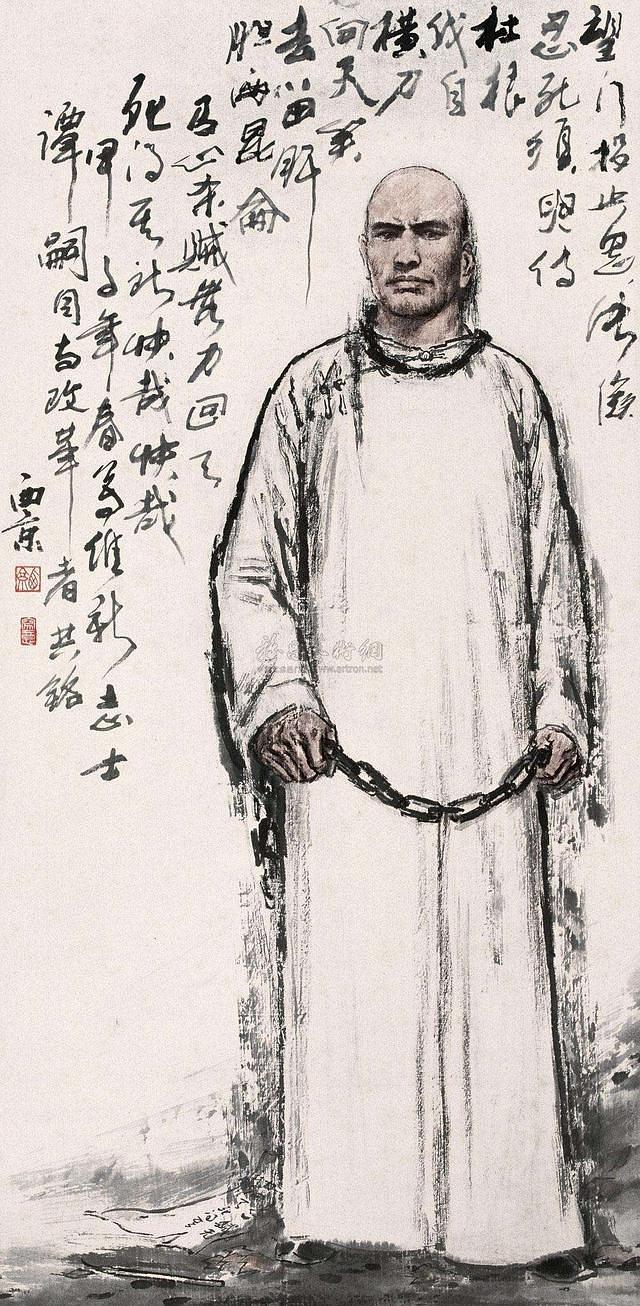 望门投止思张俭
忍死须臾待
杜根
我自
横刀
向天笑
去留肝
胆两昆侖
有心杀賊无力回天
死得其所快哉快哉
甲子年春为维新志士
谭嗣同与改革者共铭
西京
雅昌艺术網
www.artron.net